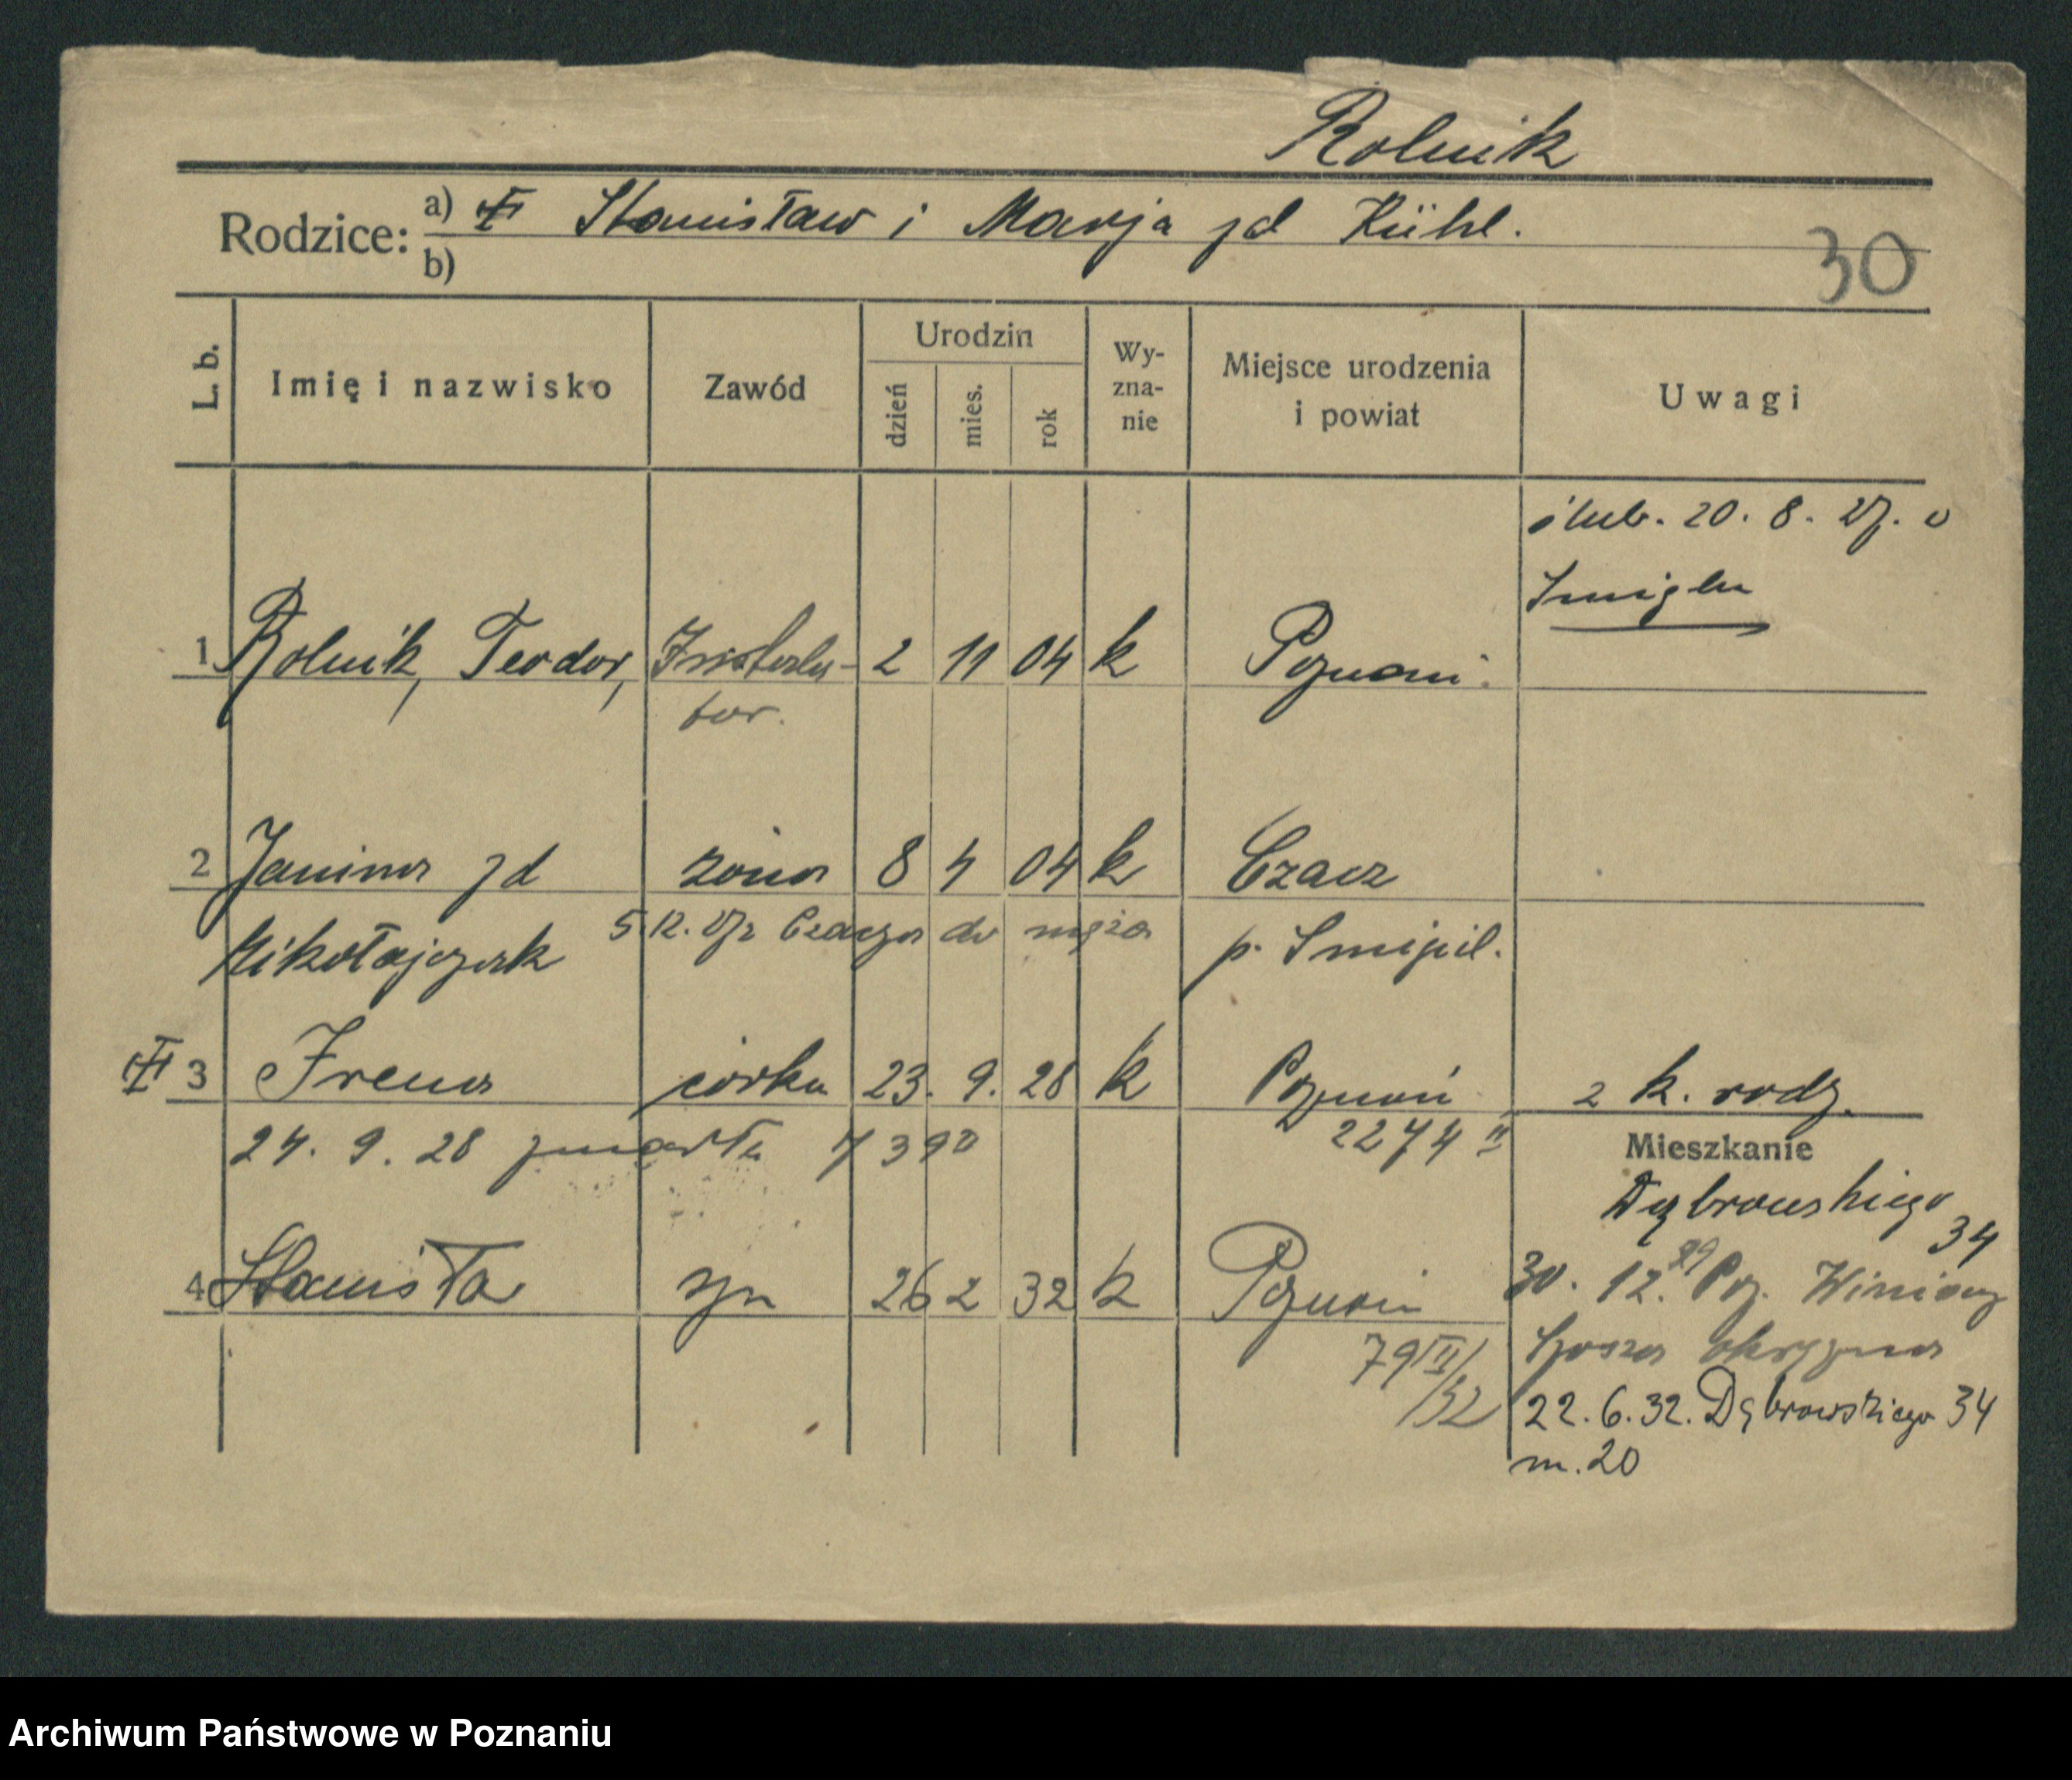 Rolnik
Rodzice: a) Stanisław i Marja zd Kühl.
b)
30
L. b. Imię i nazwisko Zawód Urodzin dzień mies. rok Wy-zna-nie Miejsce urodzenia i powiat Uwagi
ślub. 20. 8. 27. w
Śmiglu
1 Rolnik, Teodor, 2 11 04 k Poznań.
tor.
2 Janina zd żona 8 4 04 k Czacz
Mikołajczak 5.12.27 z Czacza do męża p. Śmigiel.
3 Irena córka 23. 9. 28 k Poznań 2 k. rodz.
24. 9. 28 zmarła 7390 2274 II
Mieszkanie
Dąbrowskiego
34
4 Stanisła syn 26 2 32 k Poznań 30. 12. 29 Poz. Winiary
79 II/32
22. 6. 32. Dąbrowskiego 34
m. 20
Archiwum Państwowe w Poznaniu